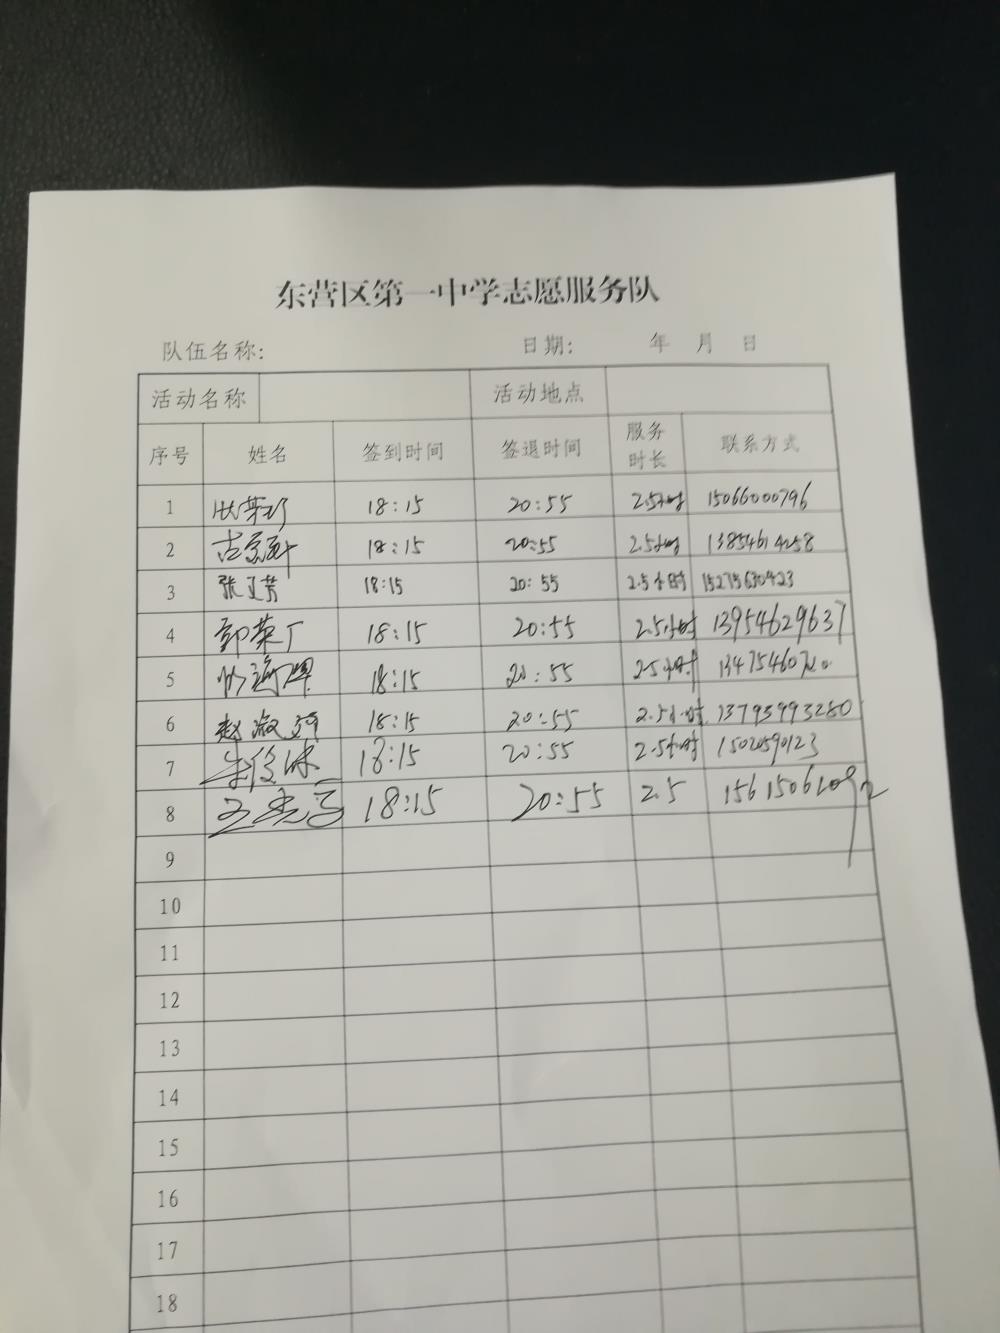 东营区第一中学志愿服务队
队伍名称: 日期: 年 月 日
活动名称 活动地点
序号 姓名 签到时间 签退时间 服务时长 联系方式
1 18:15 20:55 2.5小时 15066000796
2 18:15 20:55 2.5小时 13854614258
3 张 芳 18:15 20:55 2.5小时 15275630423
4 18:15 20:55 2.5小时 13954629637
5 18:15 20:55 2.5小时
6 赵淑 18:15 20:55 2.5小时 13793993280
7 18:15 20:55 2.5小时 1502590123
8 18:15 20:55 2.5
9
10
11
12
13
14
15
16
17
18